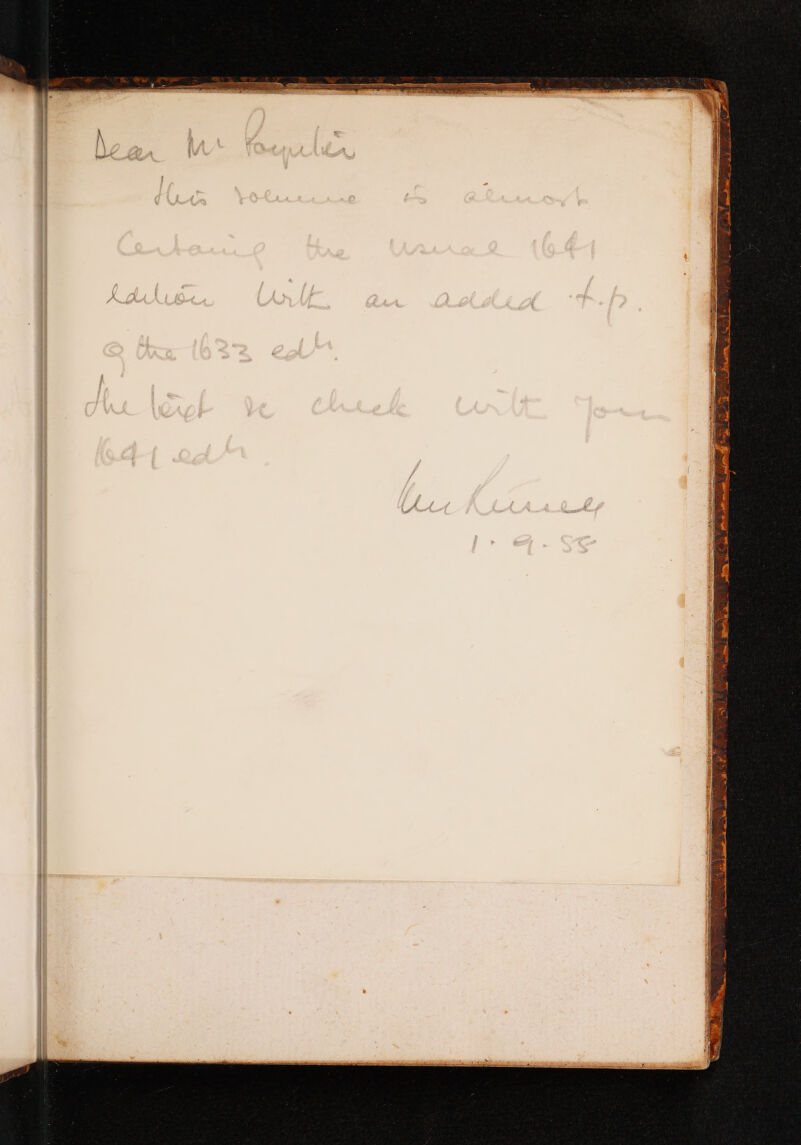 Dear Mr Poynter
this volume is almost
Certainly the usual 1641
edition with an added t.p.
of the 1633 edtn.
The text check with your
1641 edtn.
1 . 9 . 55